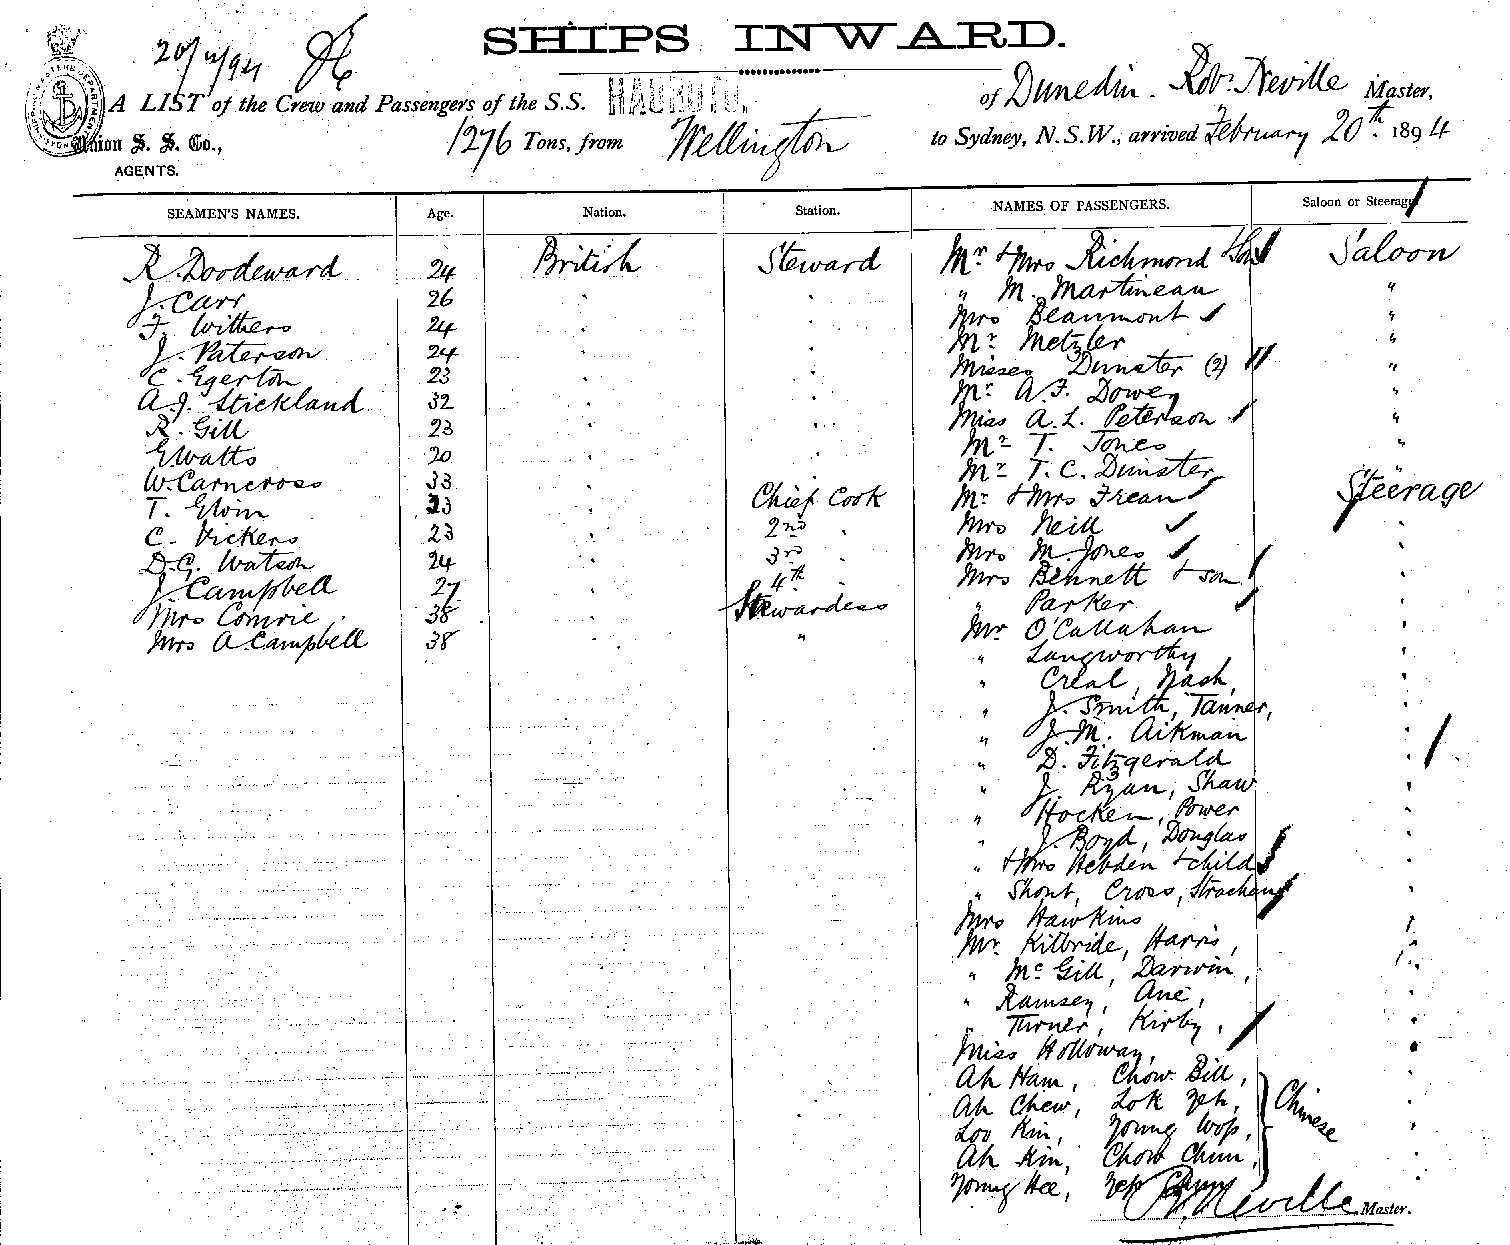 SHIPS INWARD.
20/2/94
A LIST of the Crew and Passengers of the S.S. HAUROTO, of Dunedin. Robt. Neville Master,
Union S. S. Co.,
AGENTS.
1276 Tons, from Wellington to Sydney, N.S.W., arrived February 20th. 1894
SEAMEN'S NAMES. Age. Nation. Station. NAMES OF PASSENGERS. Saloon or Steerage
R. Doodeward 24 British Steward Mr. & Mrs Richmond & Son Saloon
J. Carr 26 . . " M. Martineau "
F. Withers 24 . . Mrs Beaumont "
J. Paterson 24 . . Mr. Metzler "
C. Egerton 23 . . Misses Dunster (2) "
A.J. Stickland 32 . . Mr. A.F. Dowey "
R. Gill 23 . . Miss A.L. Peterson "
E Watts 20 . . Mr T. Jones "
W. Carncross 33 . . Mr T.C. Dunster "
T. Elvin 23 . Chief Cook Mr. & Mrs Frean Steerage
C. Vickers 23 . 2nd . Mrs Neill
D.G. Watson 24 . 3rd . Mrs M. Jones
J. Campbell 27 . 4th . Mrs Bennett & son
Mrs Comrie 38 . Stewardess " Parker
Mrs A. Campbell 38 . " Mr O'Callahan
" Langworthy
" Creal, Nash,
" J. Smith, Tanner,
" J.M. Aikman
" D. Fitzgerald
" J. Ryan, Shaw
" Hocken, Power
" J. Boyd, Douglas
" & Mrs Hebden & child
" Shout, Cross, Strachan
Mrs Hawkins
Mr. Kilbride, Harris,
" Mc Gill, Darwin,
" Ramsey, Ane,
" Turner, Kirby,
Miss Holloway,
Ah Ham, Chow Bill,
Ah Chew, Lok Yeh, Chinese
Loo Kin, Young Wop,
Ah Kin, Chow Chun,
Young Hee, Yep
R. Neville Master.